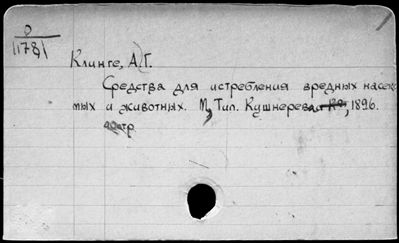 О
1178
Клинге, А.Г.
Средства для истребления вредных насеко
мых и животных. М, Тип. Кушнерева, 1896.
стр.